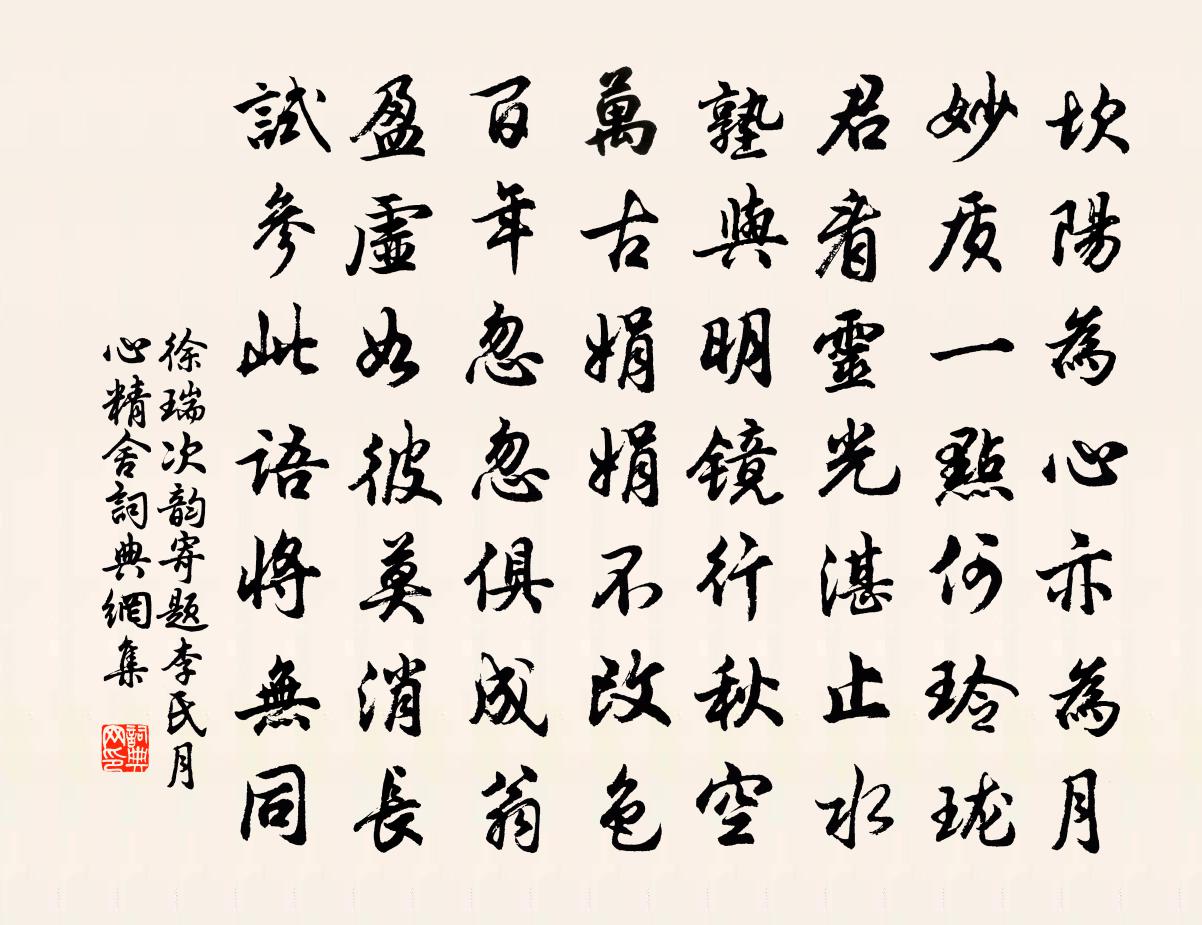 坎陽為心亦為月
妙质一點何玲珑
君看靈光湛止水
塾與明鏡行秋空
萬古娟娟不改色
百年忽忽俱成翁
盈虛如彼莫消長
試參此語將無同
徐瑞次韵寄题李氏月
心精舍詞典網集
詞典
网印